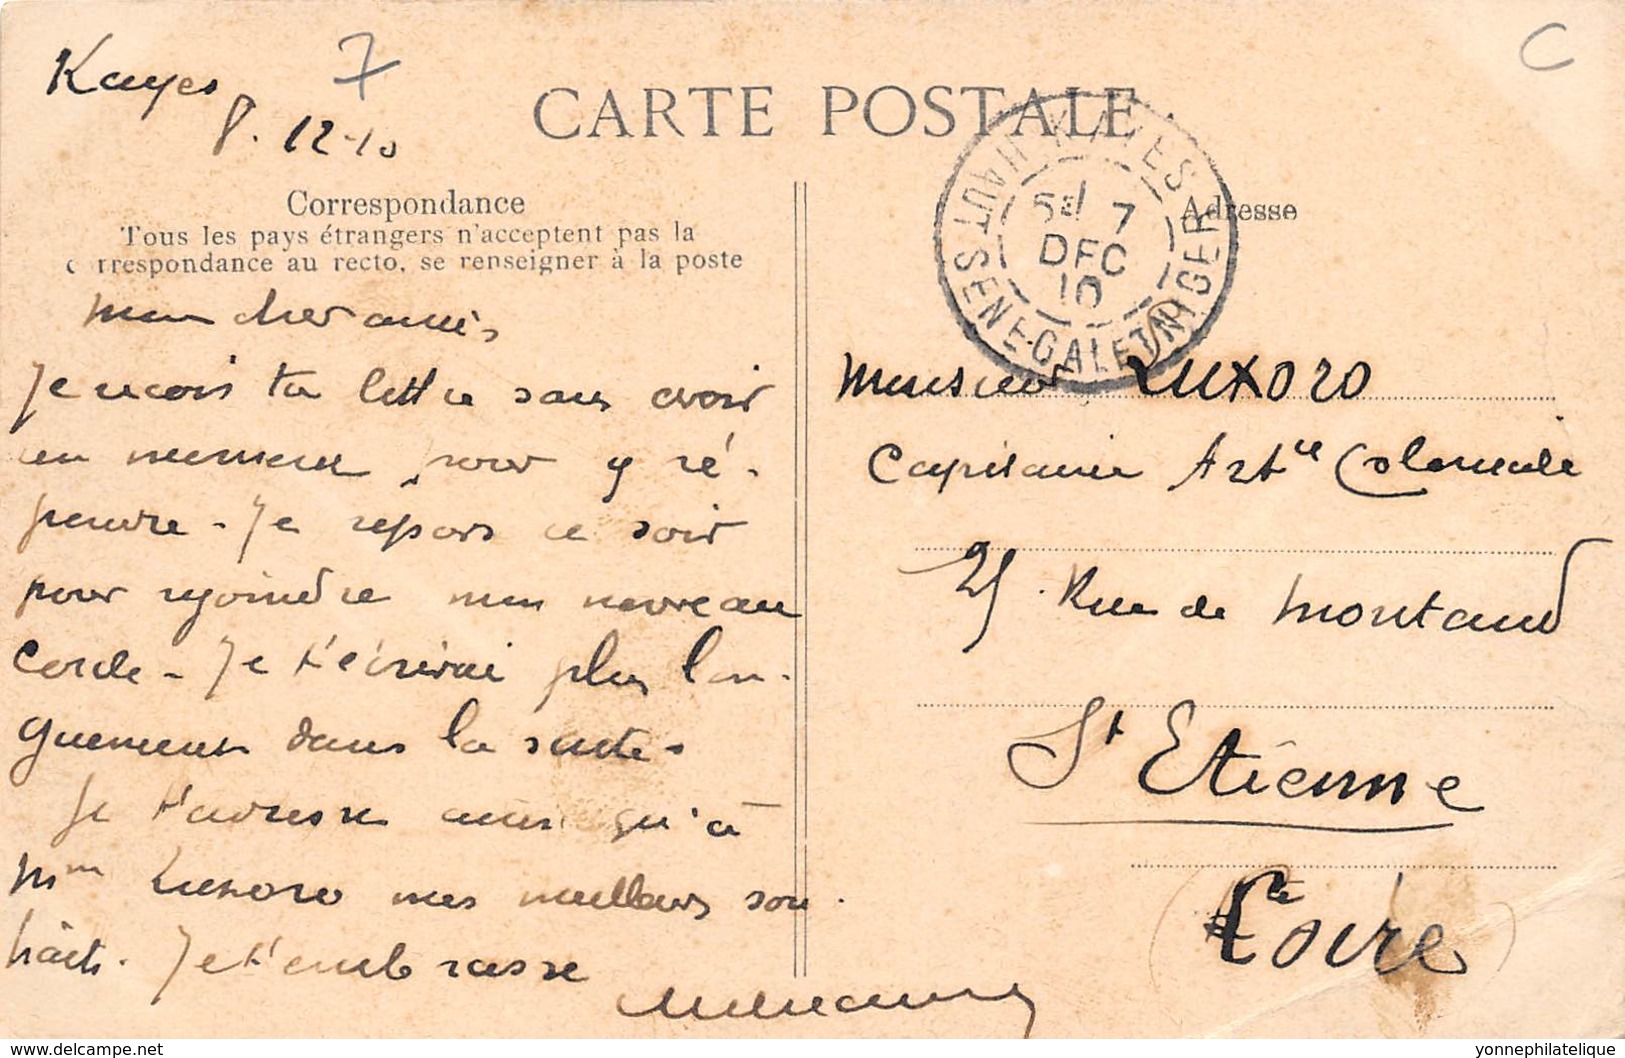 Kayes
7
C
8. 12-10
CARTE POSTALE
Correspondance
Tous les pays étrangers n'acceptent pas la
c rrespondance au recto, se renseigner à la poste
Adresse
KAYES
HAUT SENEGAL ET NIGER
7
DEC
10
mon cher ami,
Je reçois ta lettre sans avoir
un moment pour y ré-
pondre - Je repars ce soir
pour rejoindre mon nouveau
Cercle - Je t'écrirai plus lon-
guement dans la suite -
Je t'adresse ainsi qu'à
Mme Luxoro mes meilleurs sou-
haits. Je t'embrasse
Monsieur LUXORO
Capitaine Artie Coloniale
25 Rue de Montaud
St Etienne
Loire
delcampe.net
yonnephilatelique